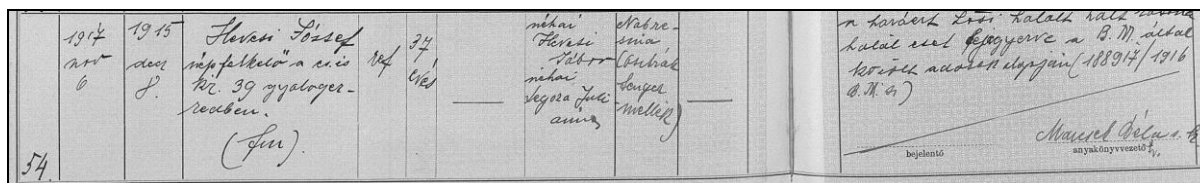 54.
1917
nov
6
1915
dec
8.
Hevesi József
népfelkelő a cs. és
kir. 39 gyalogez-
redben.
(fm).
ref
37
éves
néhai
Hevesi
Gábor
néhai
Juli
ánna
Nabre-
sina
tenger
mellék)
a hazáért hősi halált halt
halál eset bejegyezve a B. M. által
közölt adatok alapján (188917/1916
B. M. sz)
bejelentő
Béla s. k.
anyakönyvezető h.